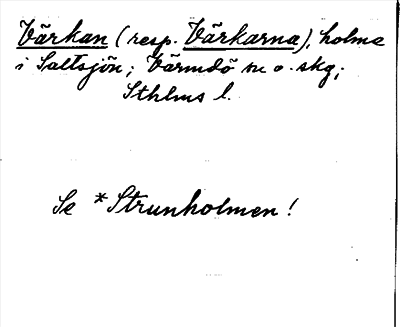 Värkan (resp. Värkarna), holme
i Saltsjön; Värmdö sn o. skg;
Sthlms l.
Se *Strunholmen!